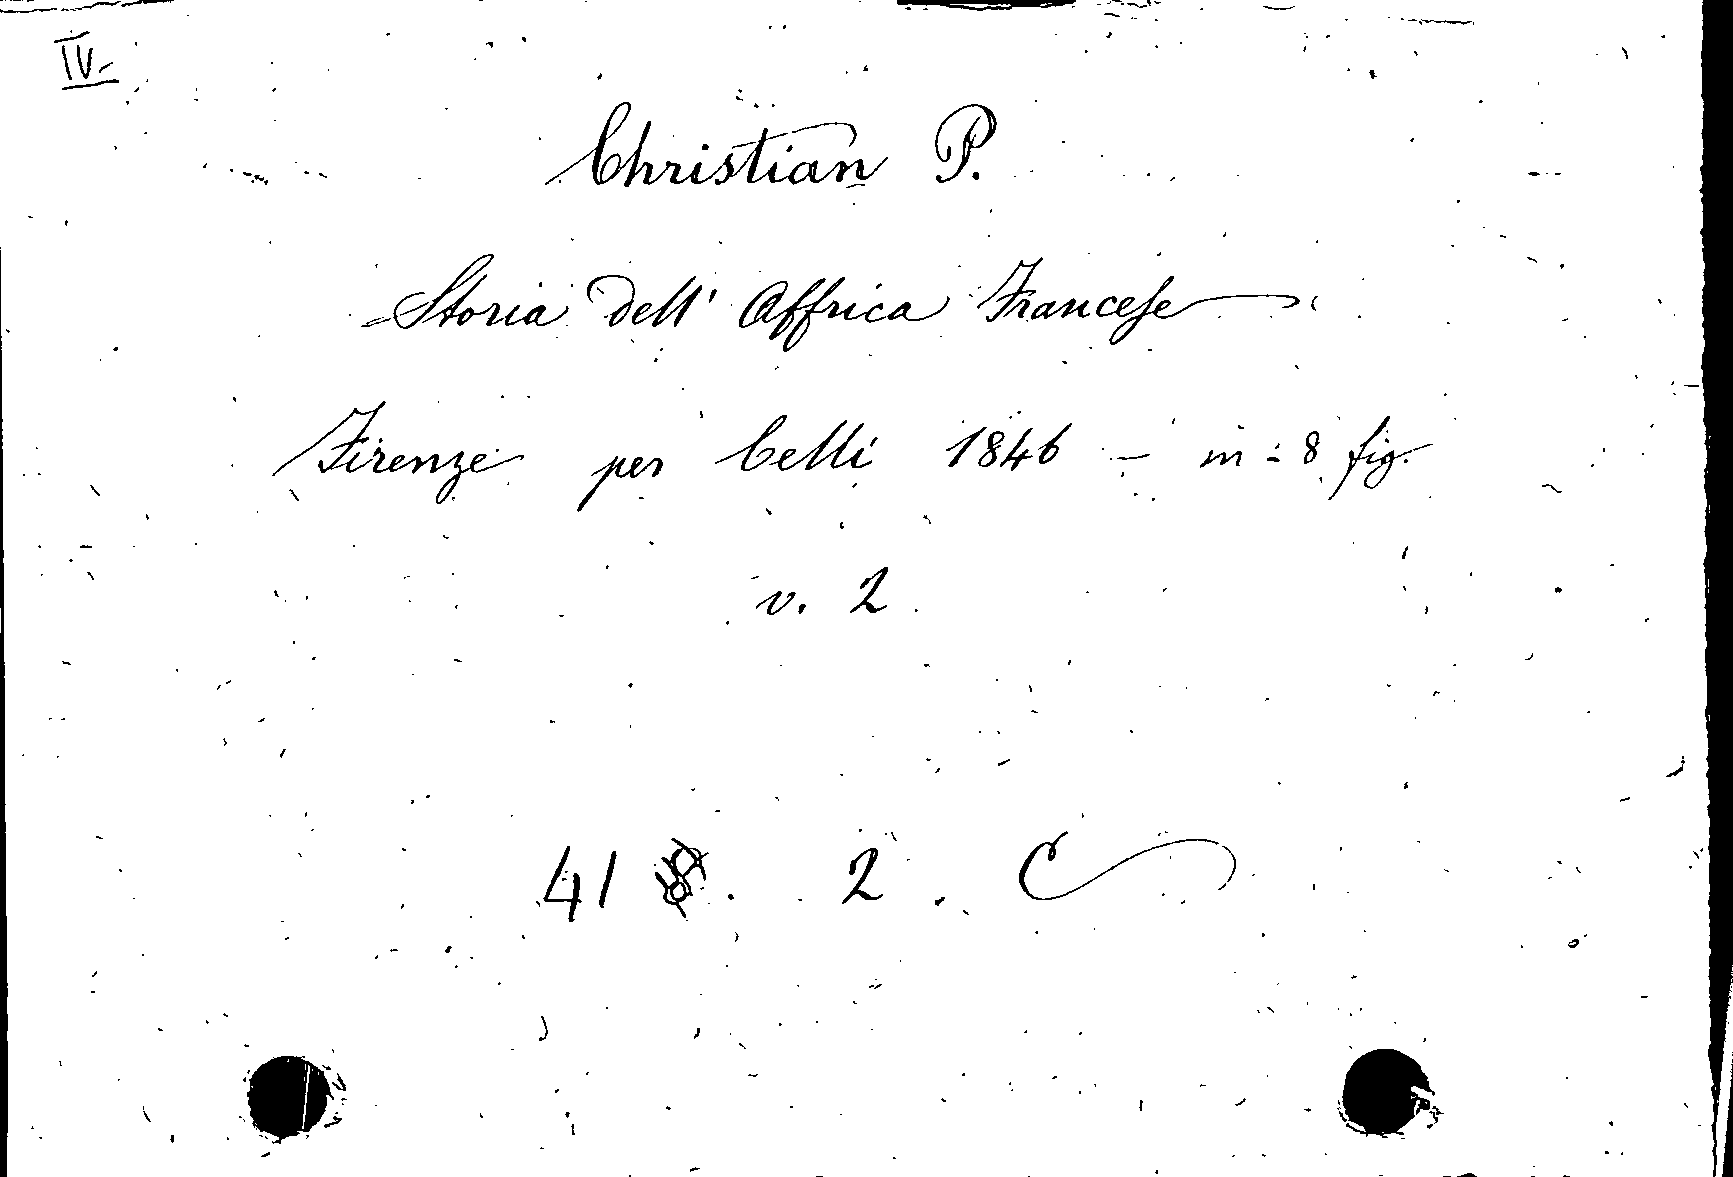 IV-
Christian P.
Storia dell' Affrica Francese
Firenze per Celli 1846 - in-8 fig.
v. 2
41 . 2 . C